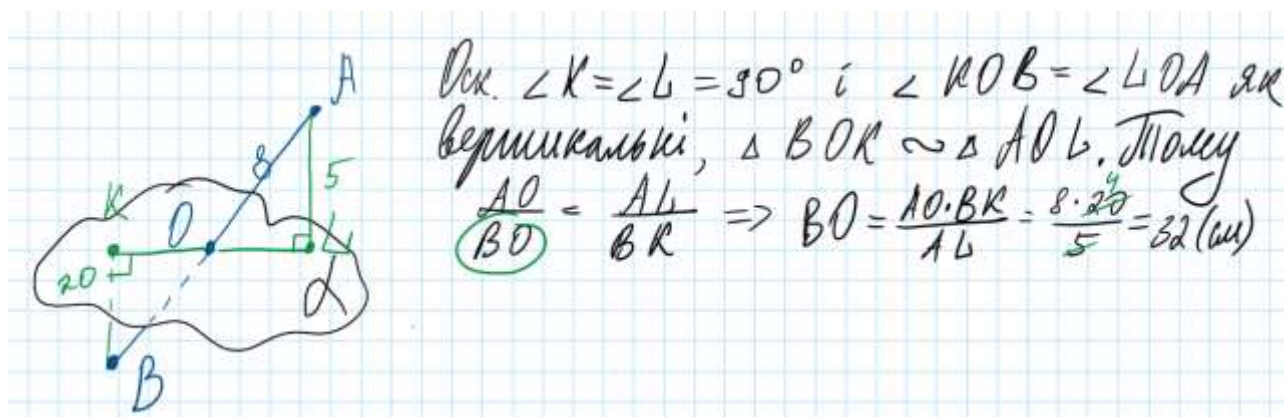 A
8
5
K
O
L
20
α
B
Оск. ∠K = ∠L = 90° і ∠KOB = ∠LOA як
вертикальні, △BOK ~ △AOL. Тому
AO/BO = AL/BK => BO = AO·BK/AL = 8·20/5 = 32 (см)
4